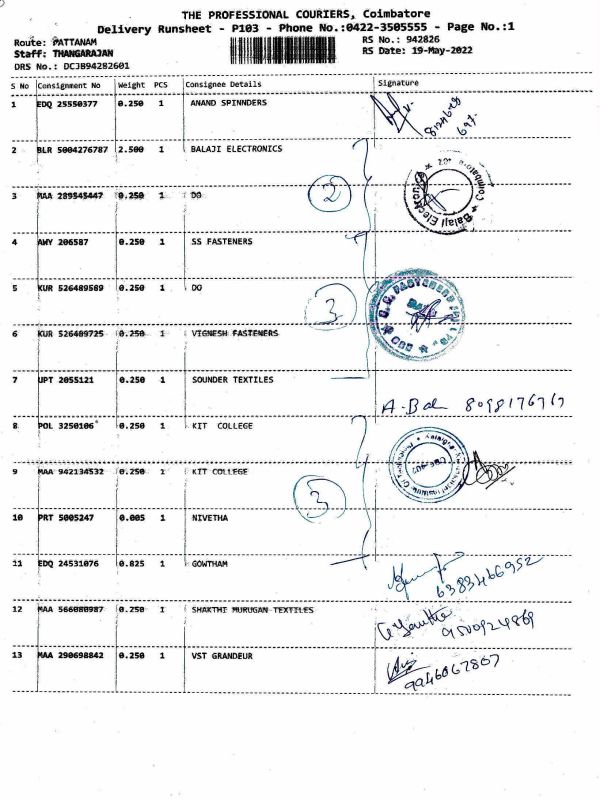 THE PROFESSIONAL COURIERS, Coimbatore
Delivery Runsheet - P103 - Phone No.:0422-3505555 - Page No.:1
Route: PATTANAM RS No.: 942826
Staff: THANGARAJAN RS Date: 19-May-2022
DRS No.: DCJB94282601
S No Consignment No Weight PCS Consignee Details Signature
1 EDQ 25550377 0.250 1 ANAND SPINNDERS
2 BLR 5004276787 2.500 1 BALAJI ELECTRONICS
3 MAA 289545447 0.250 1 DO
2
4 AWY 206587 0.250 1 SS FASTENERS
5 KUR 526489589 0.250 1 DO
3
6 KUR 526489725 0.250 1 VIGNESH FASTENERS
7 UPT 2055121 0.250 1 SOUNDER TEXTILES
A-Bal 8098176767
8 POL 3250106 0.250 1 KIT COLLEGE
9 MAA 942134532 0.250 1 KIT COLLEGE
3
10 PRT 5005247 0.005 1 NIVETHA
11 EDQ 24531076 0.825 1 GOWTHAM
6383466952
12 MAA 566080987 0.250 1 SHAKTHI MURUGAN TEXTILES
9500924869
13 MAA 290698842 0.250 1 VST GRANDEUR
9946067867